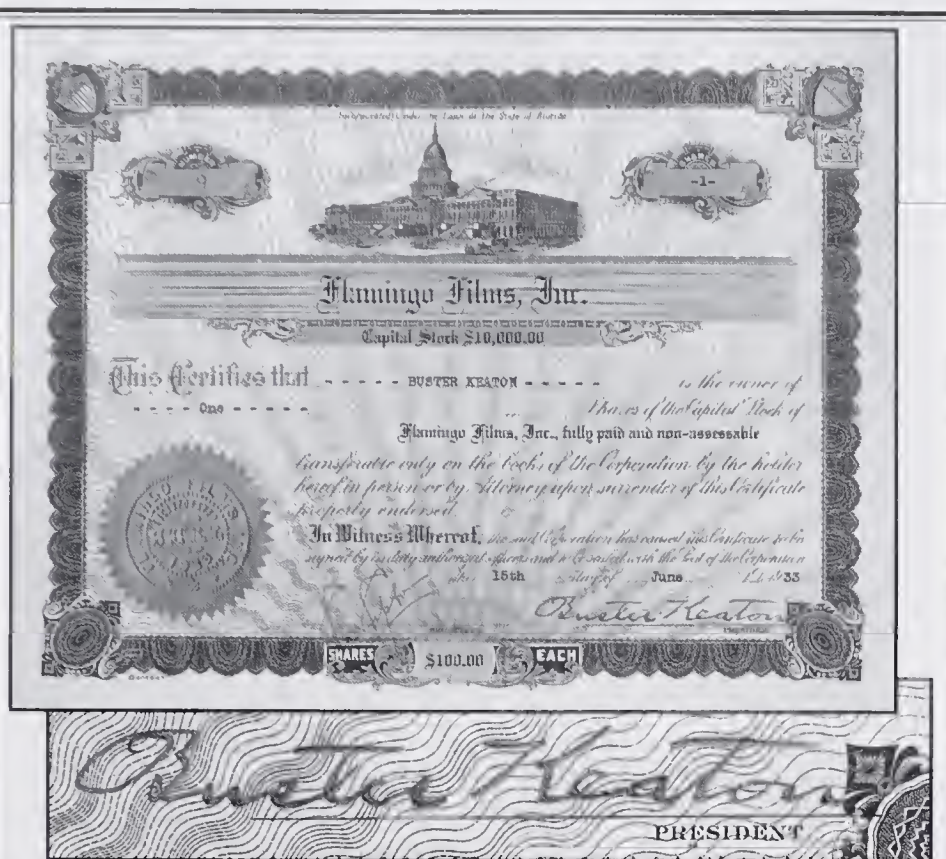 Incorporated Under the Laws of the State of Florida
9
-1-
Flamingo Films, Inc.
Capital Stock $10,000.00
This Certifies that - - - - - BUSTER KEATON - - - - - is the owner of
- - - - One - - - - - Shares of the Capital Stock of
Flamingo Films, Inc., fully paid and non-assessable
transferable only on the books of the Corporation by the holder
hereof in person or by Attorney upon surrender of this Certificate
properly endorsed.
In Witness Whereof, the said Corporation has caused this Certificate to be
signed by its duly authorized officers and to be sealed with the Seal of the Corporation
this 15th day of June A.D. 1933
Buster Keaton
PRESIDENT
SHARES $100.00 EACH
Buster Keaton
PRESIDENT